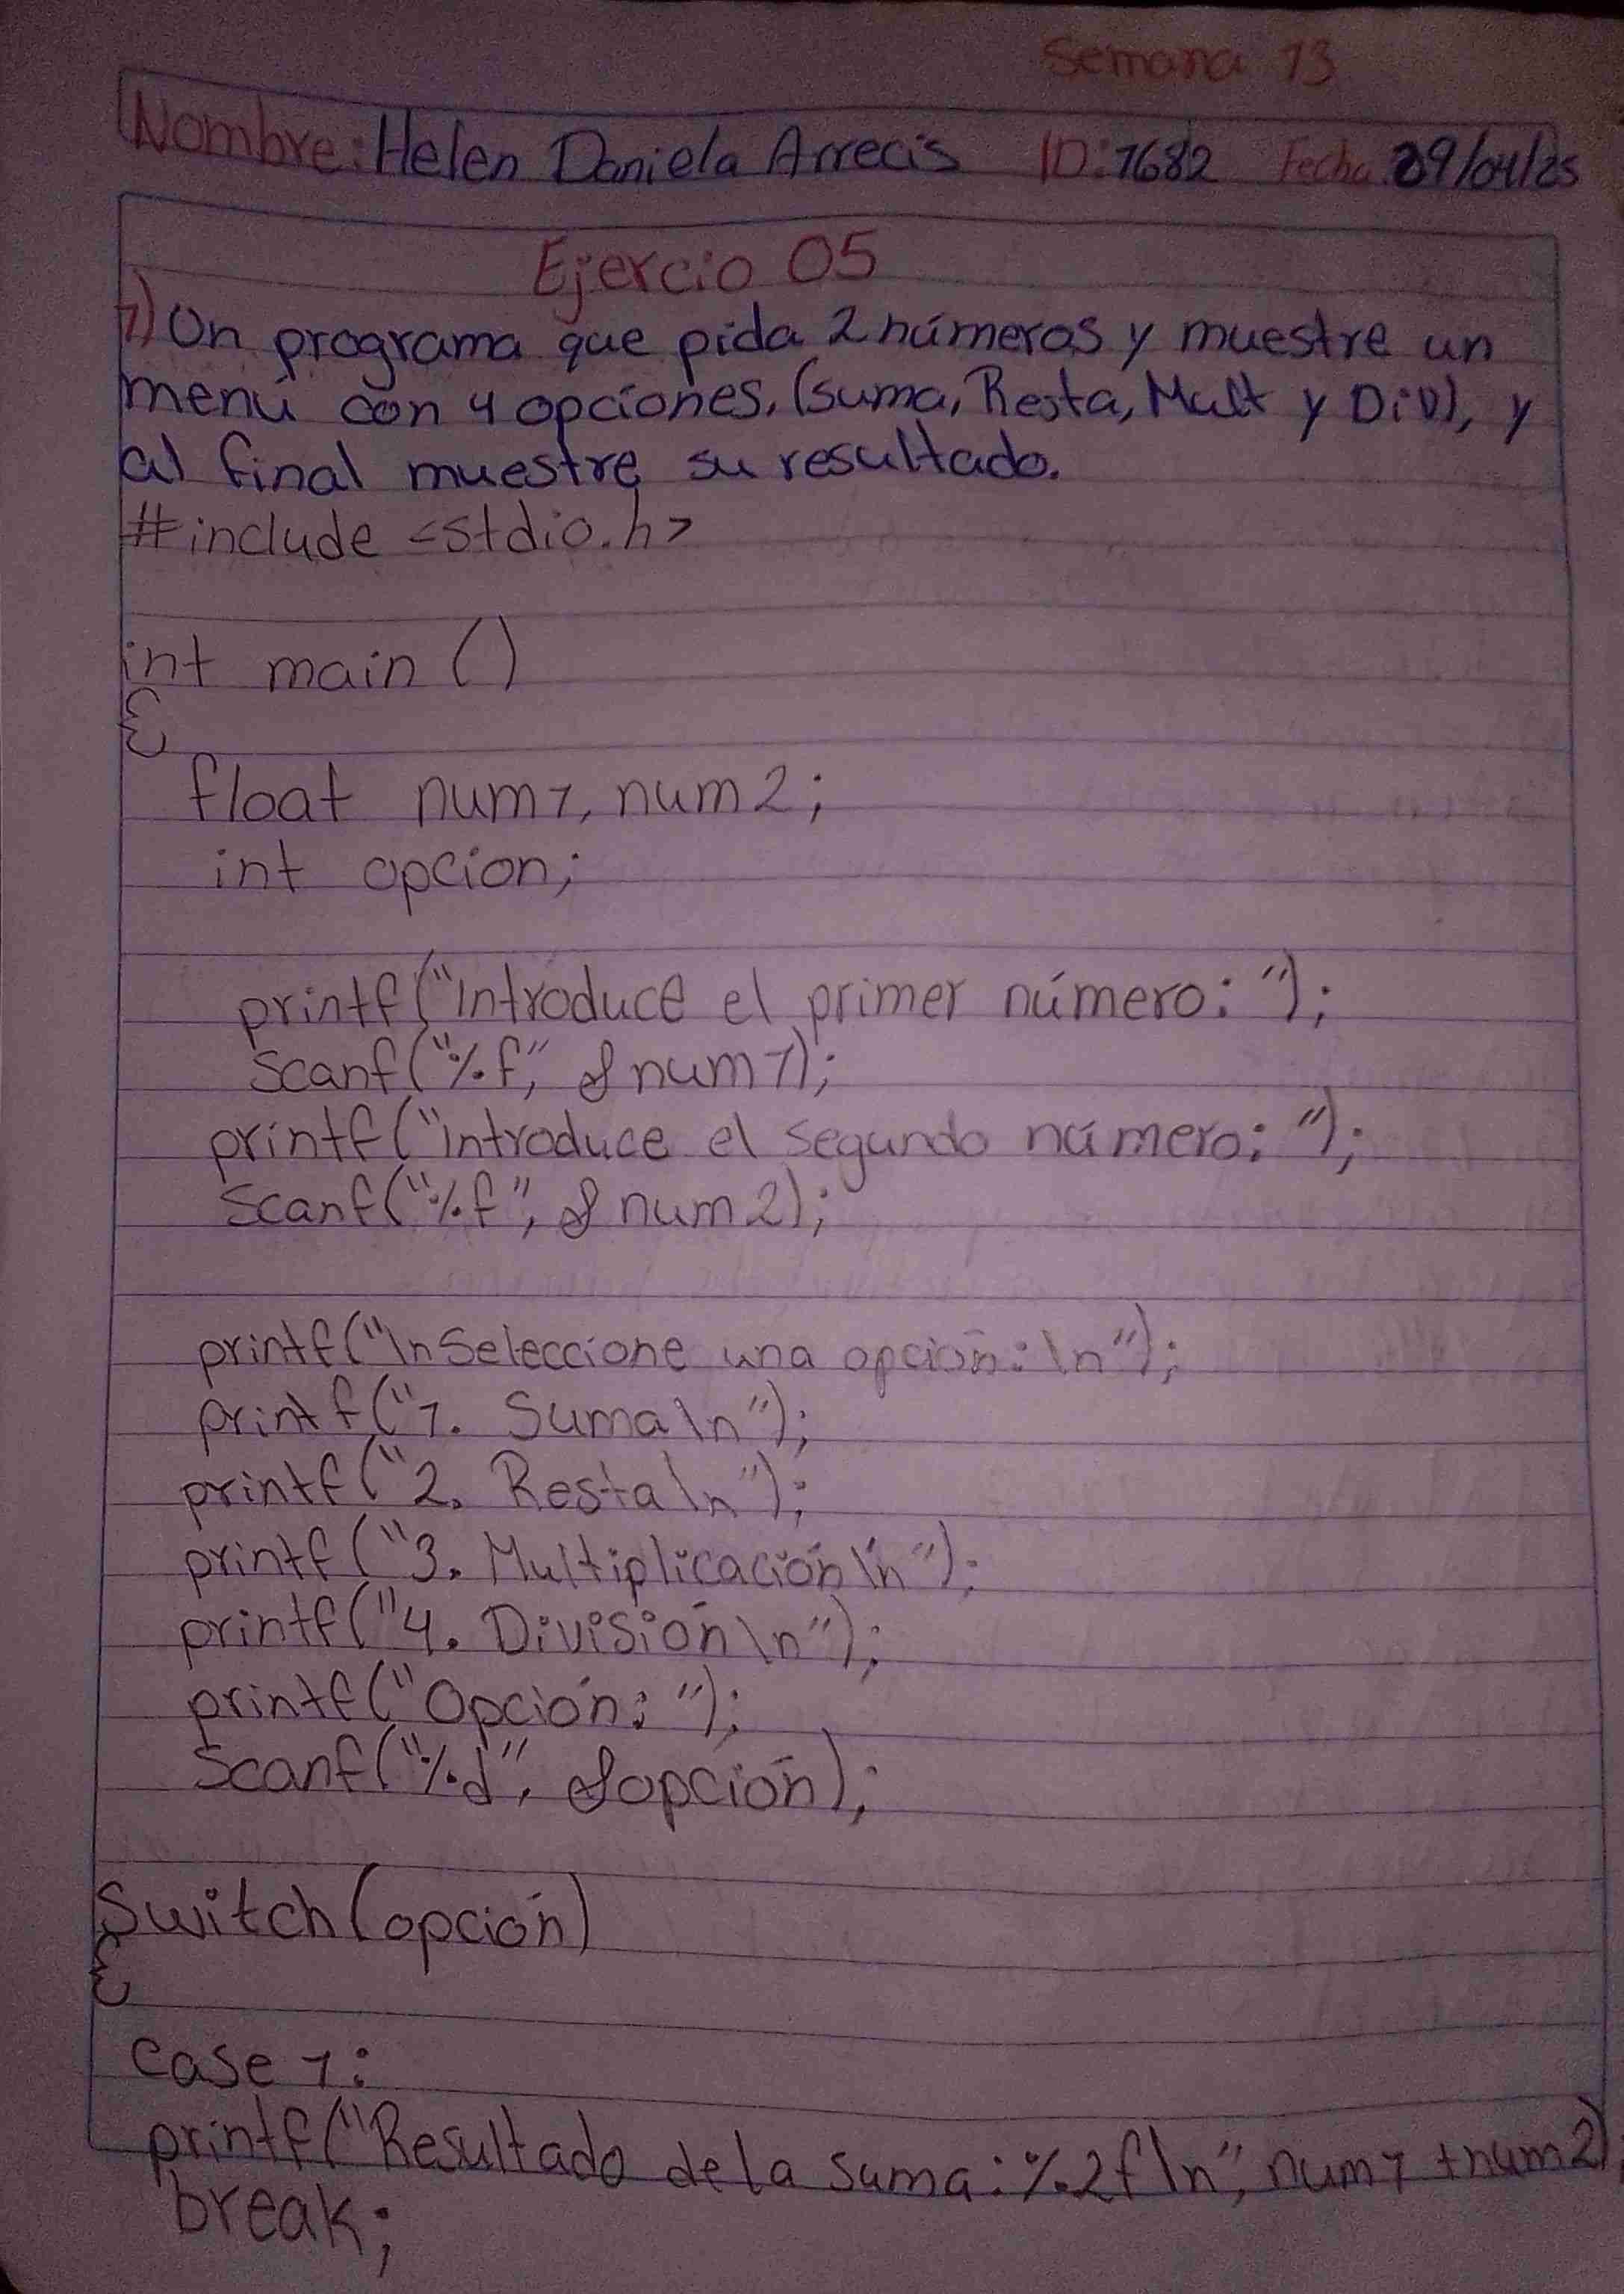 Semana 13
Nombre: Helen Daniela Arrecis ID: 1682 Fecha 29/04/25
Ejercio 05
1) Un programa que pida 2 números y muestre un
menú con 4 opciones, (suma, Resta, Mult y Div), y
al final muestre su resultado.
#include <stdio.h>
int main ()
{
float num1, num2;
int opcion;
printf("Introduce el primer número: ");
Scanf("%f", &num1);
printf("introduce el segundo número: ");
Scanf("%f", &num2);
printf("\nSeleccione una opción: \n");
printf("1. Suma\n");
printf("2. Resta\n");
printf("3. Multiplicación\n");
printf("4. División\n");
printf("Opción: ");
Scanf("%d", &opción);
Switch(opción)
{
case 1:
printf("Resultado de la suma: %.2f\n", num1 + num2);
break;